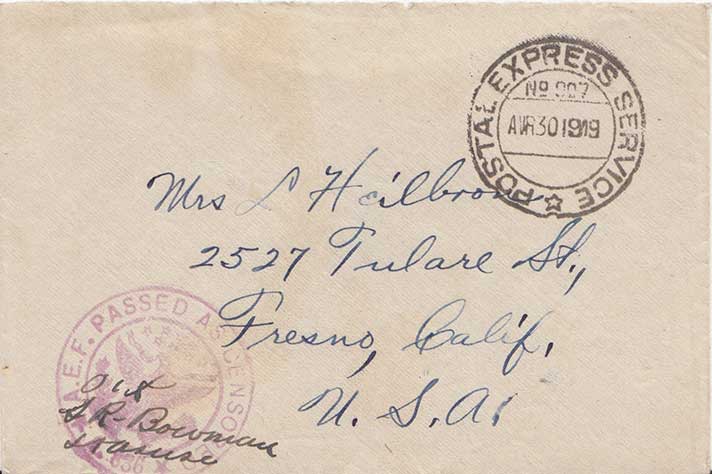 POSTAL EXPRESS SERVICE
No 907
AVR 30 1919
Mrs L Heilbron
2527 Tulare St.,
Fresno, Calif.
U. S. A.
A.E.F. PASSED AS CENSORED
OK
S R Bowman